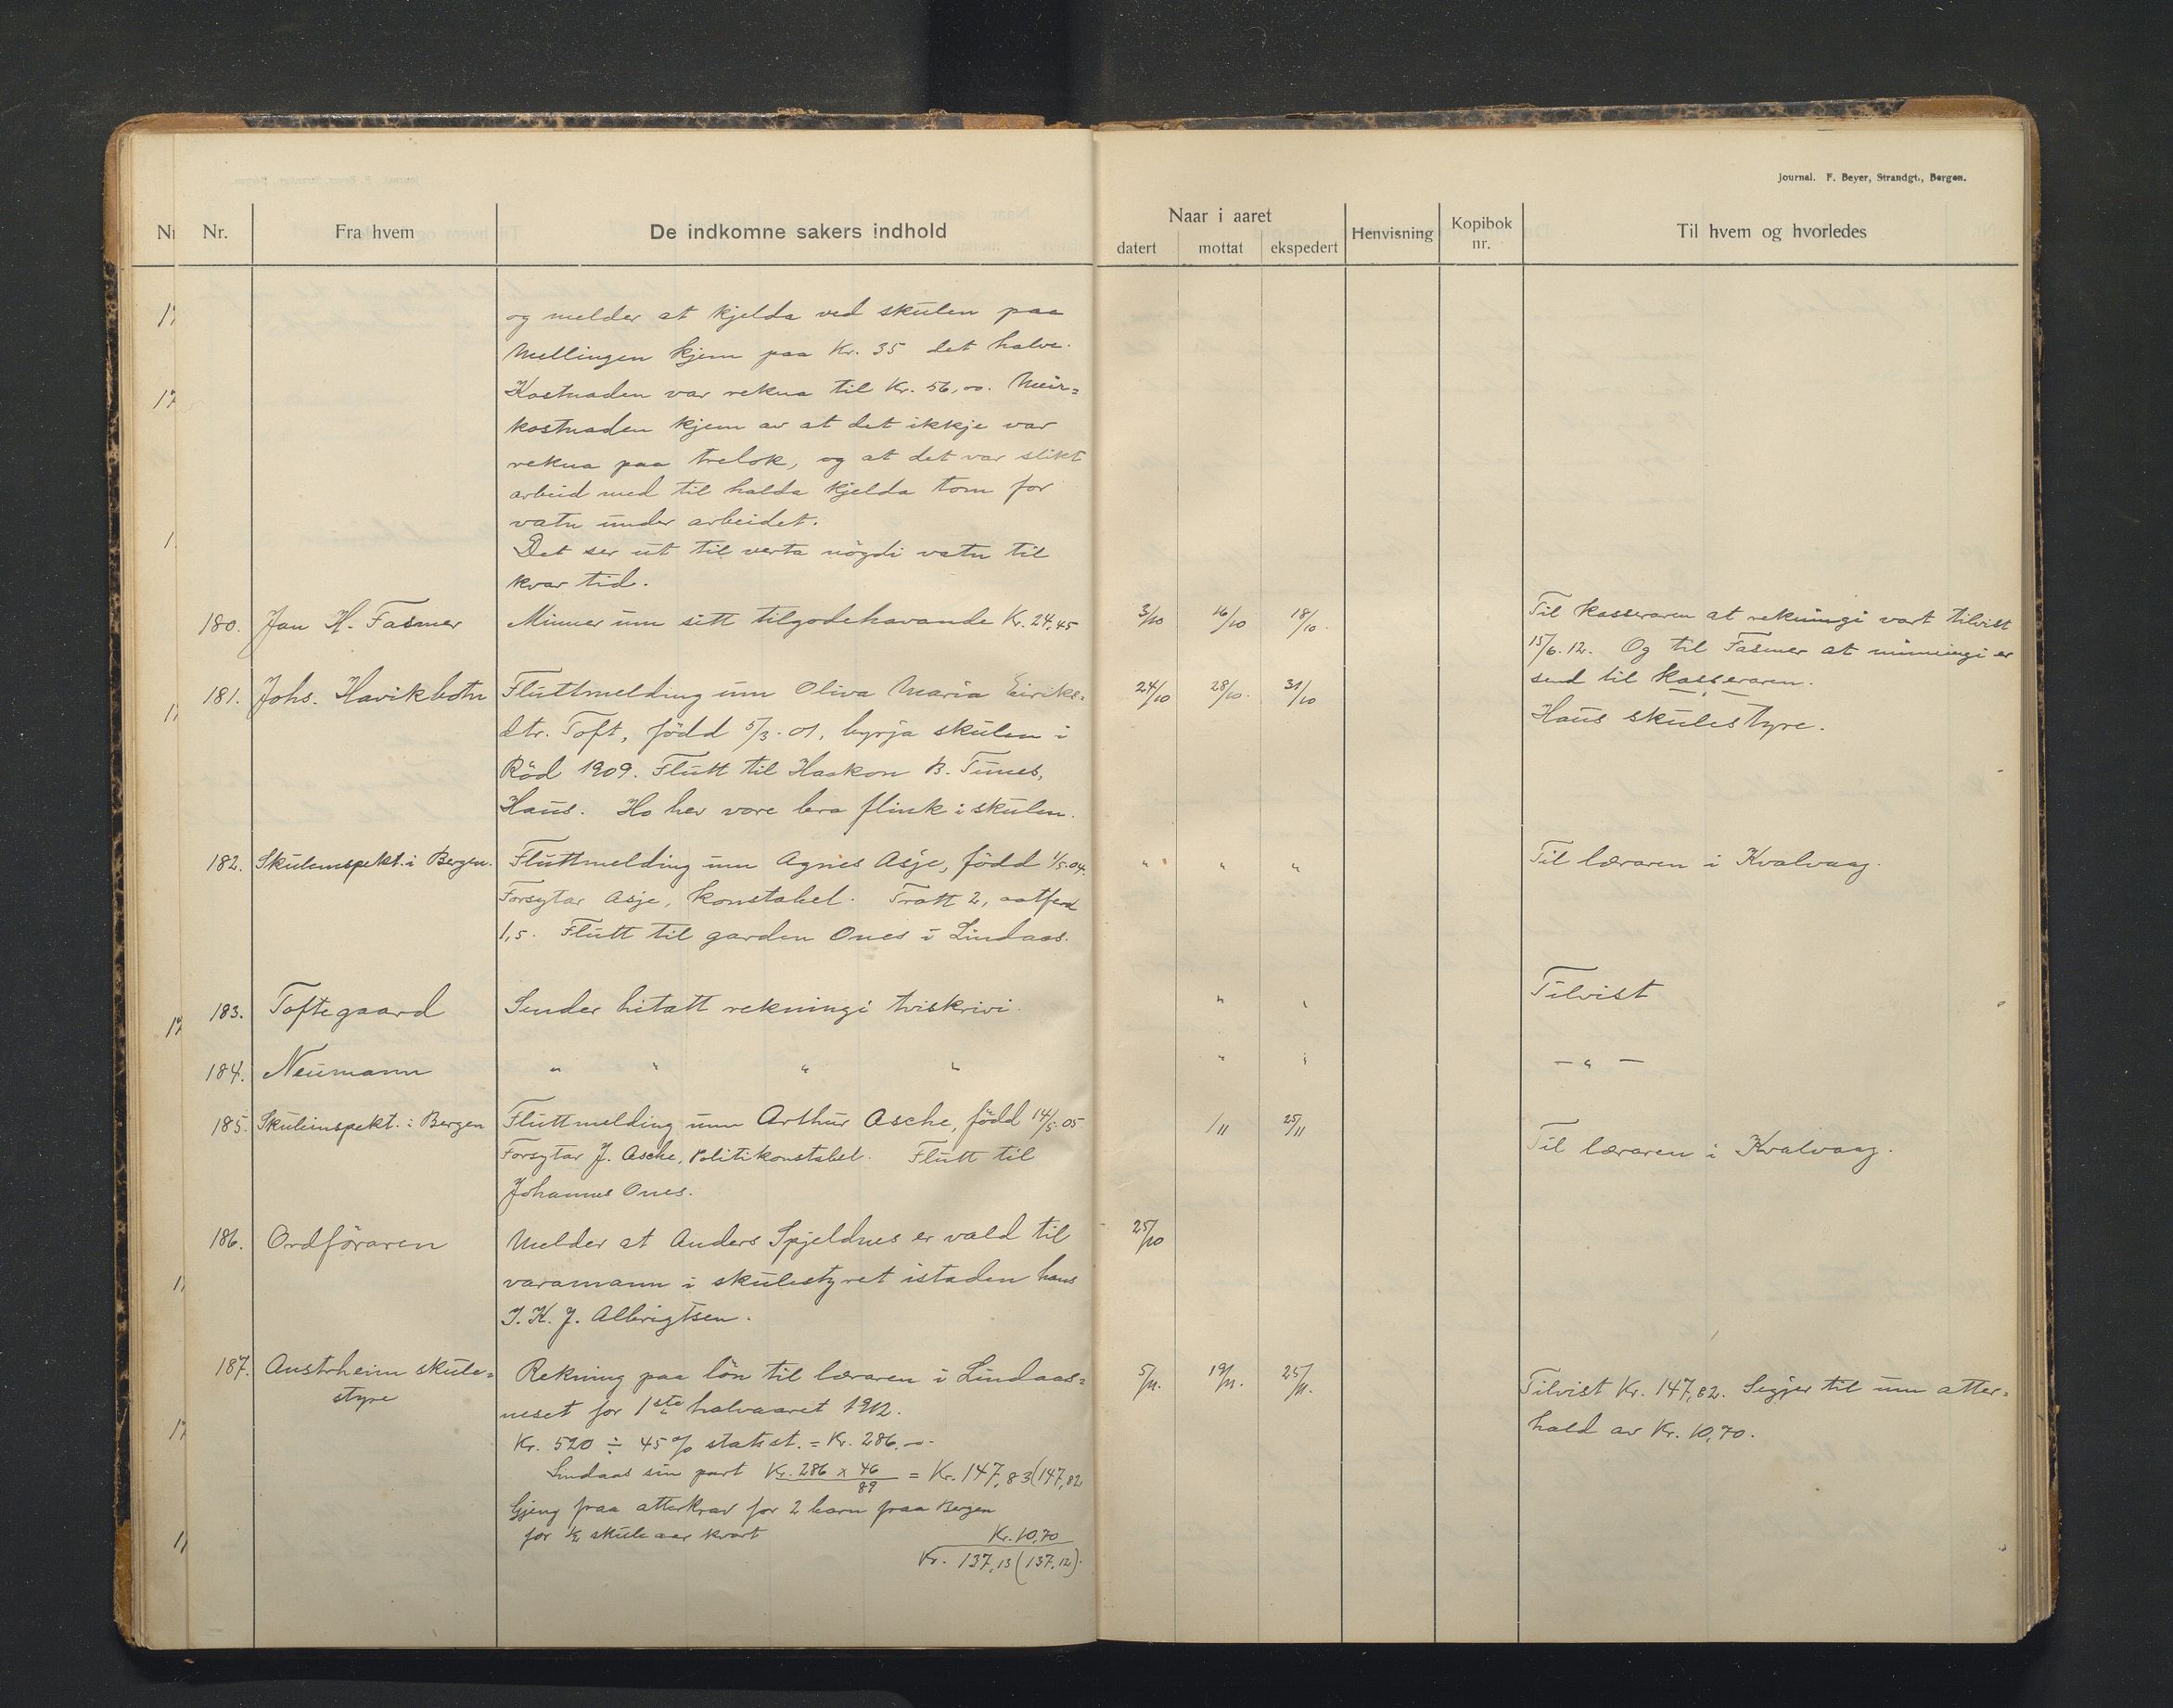 Journal. F. Beyer, Strandgt., Bergen.
Nr.
Fra hvem
De indkomne sakers indhold
Naar i aaret
datert
mottat
ekspedert
Henvisning
Kopibok nr.
Til hvem og hvorledes
og melder at kjelda ved skulen paa
Mellingen kjem paa Kr. 35 det halve.
Kostnaden var rekna til Kr. 56,00. Meir=
kostnaden kjem av at det ikkje var
rekna paa trelok, og at det var slikt
arbeid med til halda kjelda tom for
vatn under arbeidet.
Det ser ut til verta nögdi vatn til
kvar tid.
180. Jan H. Fasmer Minner um sitt tilgodehavande Kr. 24,45 3/10 16/10 18/10. Til kasseraren at rekningi vart tilvist
15/6.12. Og til Fasmer at minningi er
send til kasseraren.
181. Johs. Havikbotn Fluttmelding um Oliva Maria Eiriks= 24/10 28/10. 31/10 Haus skulestyre.
dtr. Toft, född 5/3. 01, byrja skulen i
Röd 1909. Flutt til Haakon B. Tunes,
Haus. Ho hev vore bra flink i skulen.
182. Skuleinspekt. i Bergen. Fluttmelding um Agnes Asje, född 1/5.04. " " " Til læraren i Kvalvaag.
Forsytar Asje, konstabel. Tratt 2, aatferd
1,5. Flutt til garden Ones i Lindaas.
183. Toftegaard Sender hitatt rekningi tviskrivi. " " Tilvist
184. Neumann " " " " " " — " —
185. Skuleinspekt. i Bergen Fluttmelding um Arthur Asche, född 14/5.05 /11 25/11 Til læraren i Kvalvaag.
Forsytar J. Asche, Politikonstabel. Flutt til
Johannes Ones.
186. Ordföraren Melder at Anders Spjeldnes er vald til 25/10
varamann i skulestyret istaden hans
I. K. J. Albrigtsen.
187. Austrheim skule=
styre
Rekning paa lön til læraren i Lindaas= 5/11. 19/11. 25/11. Tilvist Kr. 147,82. Segjer til um atter=
neset for 1ste halvaaret 1912. hald av Kr. 10,70.
Kr. 520 ÷ 45 % statsst. = Kr. 286.—
Lindaas sin part Kr. 286 x 46 / 89 = Kr. 147,83 (147,82
Gjeng fraa atterkrav for 2 barn fraa Bergen
for 1/2 skuleaar kvart Kr. 10,70
Kr. 137,13 (137,12).